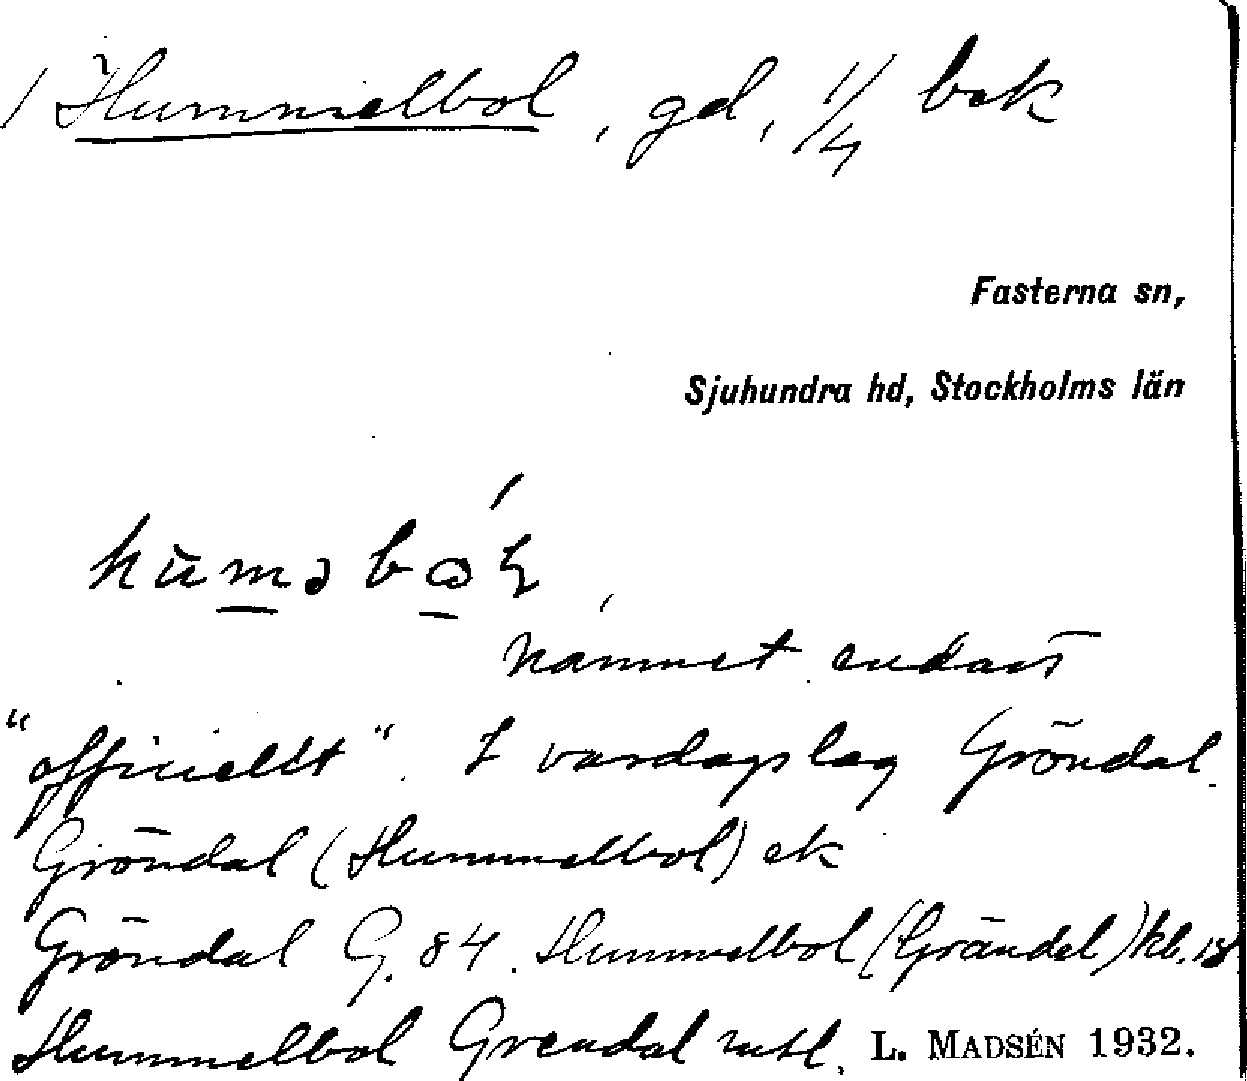 Hummelbol, gd, 1/4 bok
Fasterna sn,
Sjuhundra hd, Stockholms län
Namnet endast
"officiellt". I vardagslag Gröndal.
Gröndal (Hummelbol) ek
Gröndal G. 84. Hummelbol (Grändel) kb.
Hummelbol Grendal mtl, L. MADSÉN 1932.